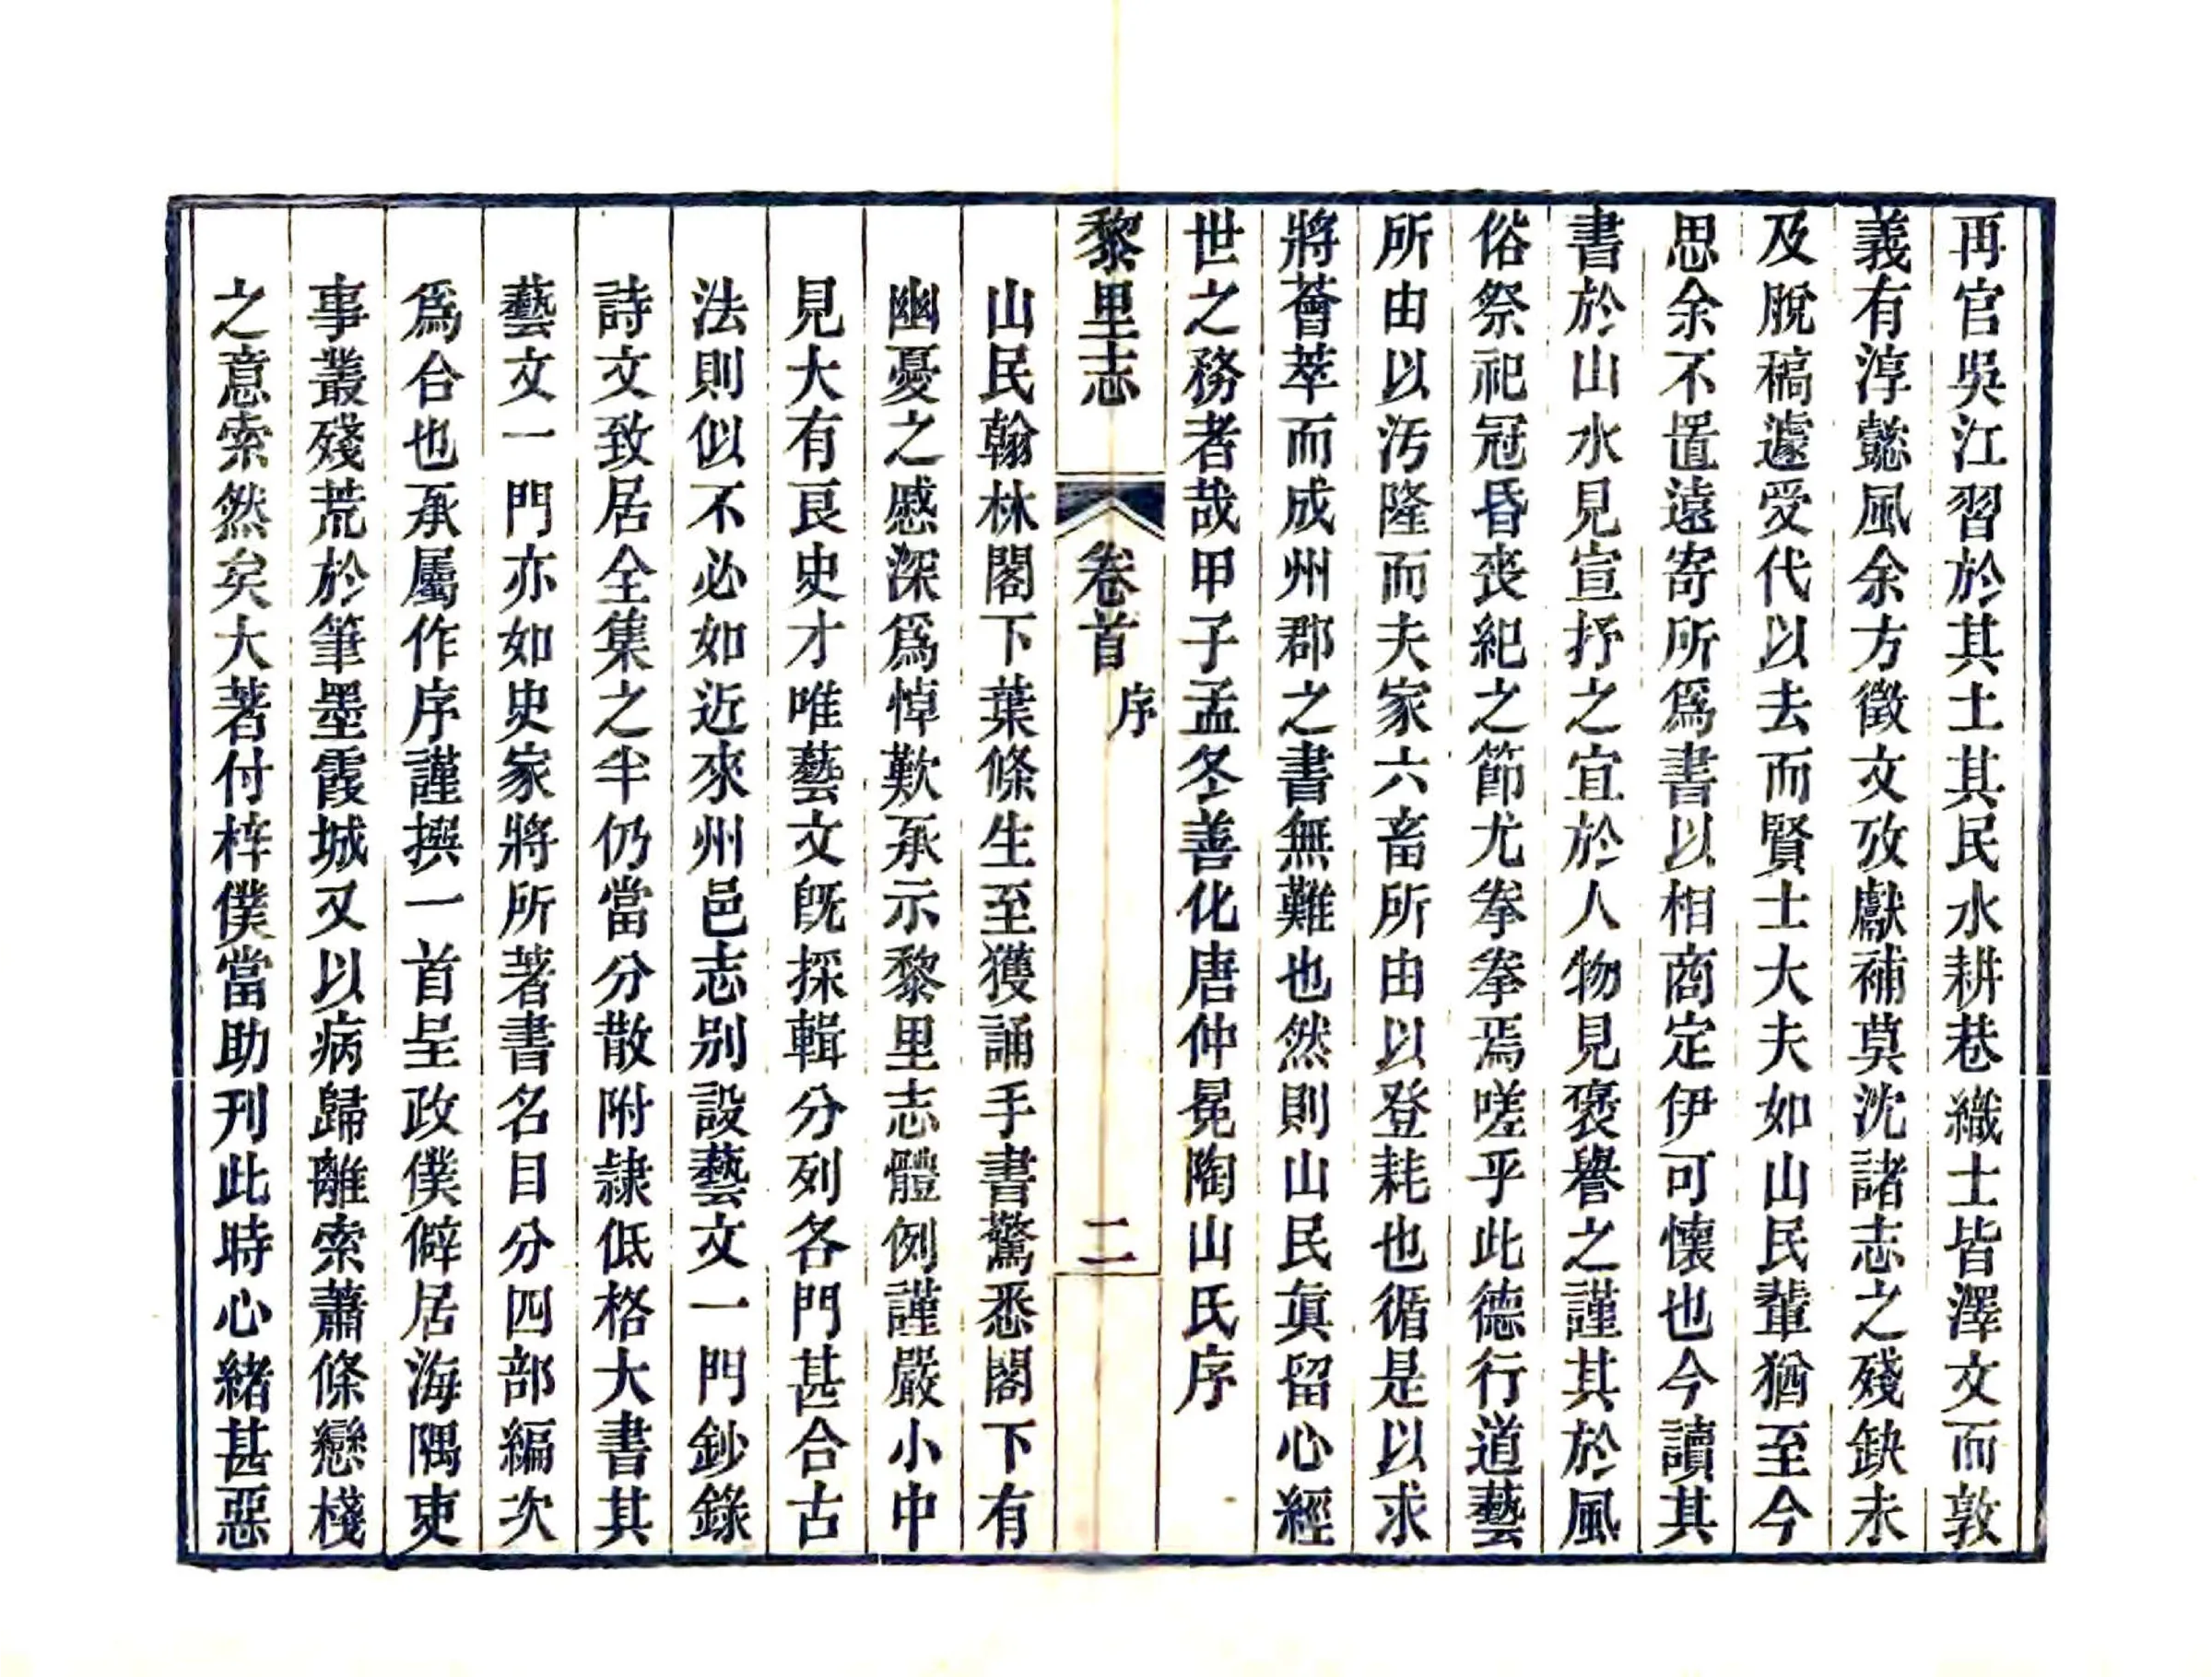 再官吳江習於其土其民水耕巷織士皆澤文而敦
義有淳懿風余方徵文攷獻補莫沈諸志之殘缺未
及脫稿遽受代以去而賢士大夫如山民輩猶至今
思余不置遠寄所爲書以相商定伊可懷也今讀其
書於山水見宣抒之宜於人物見褒譽之謹其於風
俗祭祀冠昏喪紀之節尤拳拳焉嗟乎此德行道藝
所由以汚隆而夫家六畜所由以登耗也循是以求
將薈萃而成州郡之書無難也然則山民眞留心經
世之務者哉甲子孟冬善化唐仲冕陶山氏序
黎里志
卷首
序
二
山民翰林閣下葉條生至獲誦手書驚悉閣下有
幽憂之慼深爲悼歎承示黎里志體例謹嚴小中
見大有良史才唯藝文旣採輯分列各門甚合古
法則似不必如近來州邑志別設藝文一門鈔錄
詩文致居全集之半仍當分散附隷低格大書其
藝文一門亦如史家將所著書名目分四部編次
爲合也承屬作序謹撰一首呈政僕僻居海隅吏
事叢殘荒於筆墨霞城又以病歸離索蕭條戀棧
之意索然矣大著付梓僕當助刊此時心緒甚惡